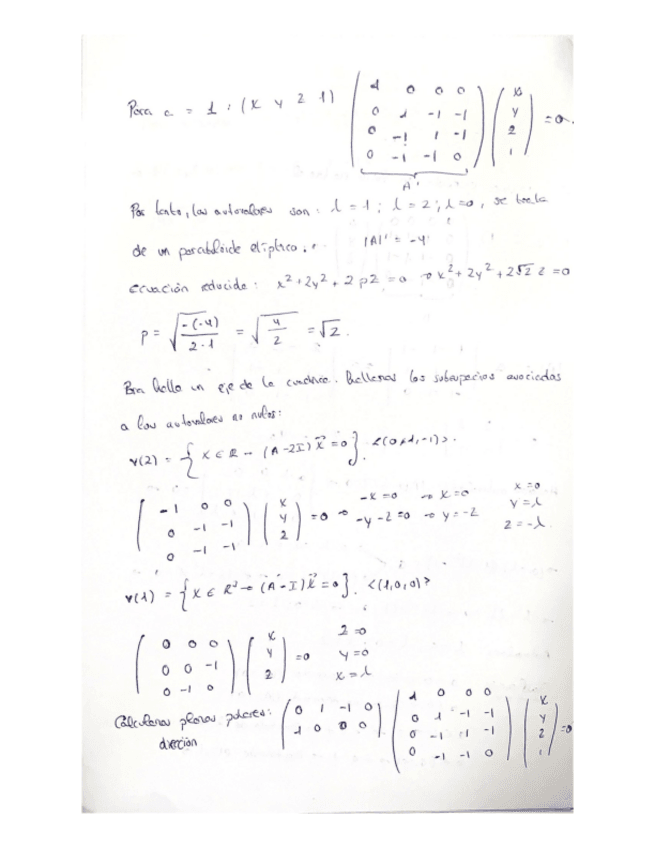 Para a = 1 : (x y z 1) ( 1 0 0 0 / 0 1 -1 -1 / 0 -1 1 -1 / 0 -1 -1 0 ) ( x / y / z / 1 ) = 0.
A'
Por tanto, los autovalores son: λ = 1 ; λ = 2 ; λ = 0, se trata
de un paraboloide elíptico. |A|' = -4
Ecuación reducida: x² + 2y² + 2pz = 0 → x² + 2y² + 2√2 z = 0
p = √(-(-4) / 2·1) = √(4 / 2) = √2.
Para hallar un eje de la cuádrica. Hallamos los subespacios asociados
a los autovalores no nulos:
V(2) = { X ∈ R → (A - 2I) x⃗ = 0 }. <(0, 1, -1)>.
( -1 0 0 / 0 -1 -1 / 0 -1 -1 ) ( x / y / z ) = 0 → -x = 0 → x = 0 / -y - z = 0 → y = -z x = 0 / y = λ / z = -λ
V(1) = { X ∈ R³ → (A - I) x⃗ = 0 }. <(1, 0, 0)>
( 0 0 0 / 0 0 -1 / 0 -1 0 ) ( x / y / z ) = 0 z = 0 / y = 0 / x = λ
Calculamos planos polares: ( 0 1 -1 0 / 1 0 0 0 ) ( 1 0 0 0 / 0 1 -1 -1 / 0 -1 1 -1 / 0 -1 -1 0 ) ( x / y / z / 1 ) = 0
dirección